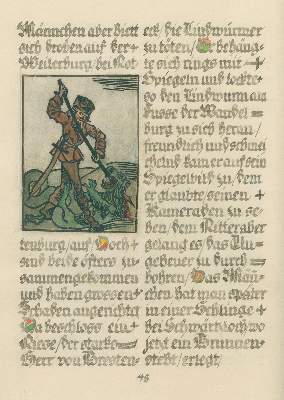 Männchen aber hielt
sich droben auf der +
Weilerburg/bei Rot
tenburg/auf/Doch +
sind beide öfters zu
sammengekommen
und haben grossen +
Schaden angerichtet
Da beschloss ein +
Riese/der starke
Herr von Bresten-
eck/die Lindwürmer
zu töten/Er behäng-
te sich rings mit +
Spiegeln und lockte
so den Lindwurm am
Fusse der Wandel =
burg zu sich heran/
freundlich und schmei
chelnd kam er auf sein
Spiegelbild zu/dem
er glaubte seinen +
Kameraden zu se-
hen/dem Ritter aber
gelang es das Un-
geheuer zu durch =
bohren/Das Män-
chen hat man später
in einer Schlinge +
bei Schwärzloch wo
jetzt ein Brunnen-
steht/erlegt/
48